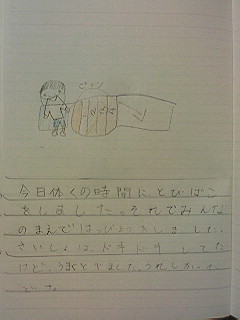 ピョン
1
2
3
4
今日体くの時間に、とびばこ
をしました。それでみんな
のまえではっぴょうをしました。
さいしょは、ドキドキしてた
けど、うまくとびました。うれしかった
です。